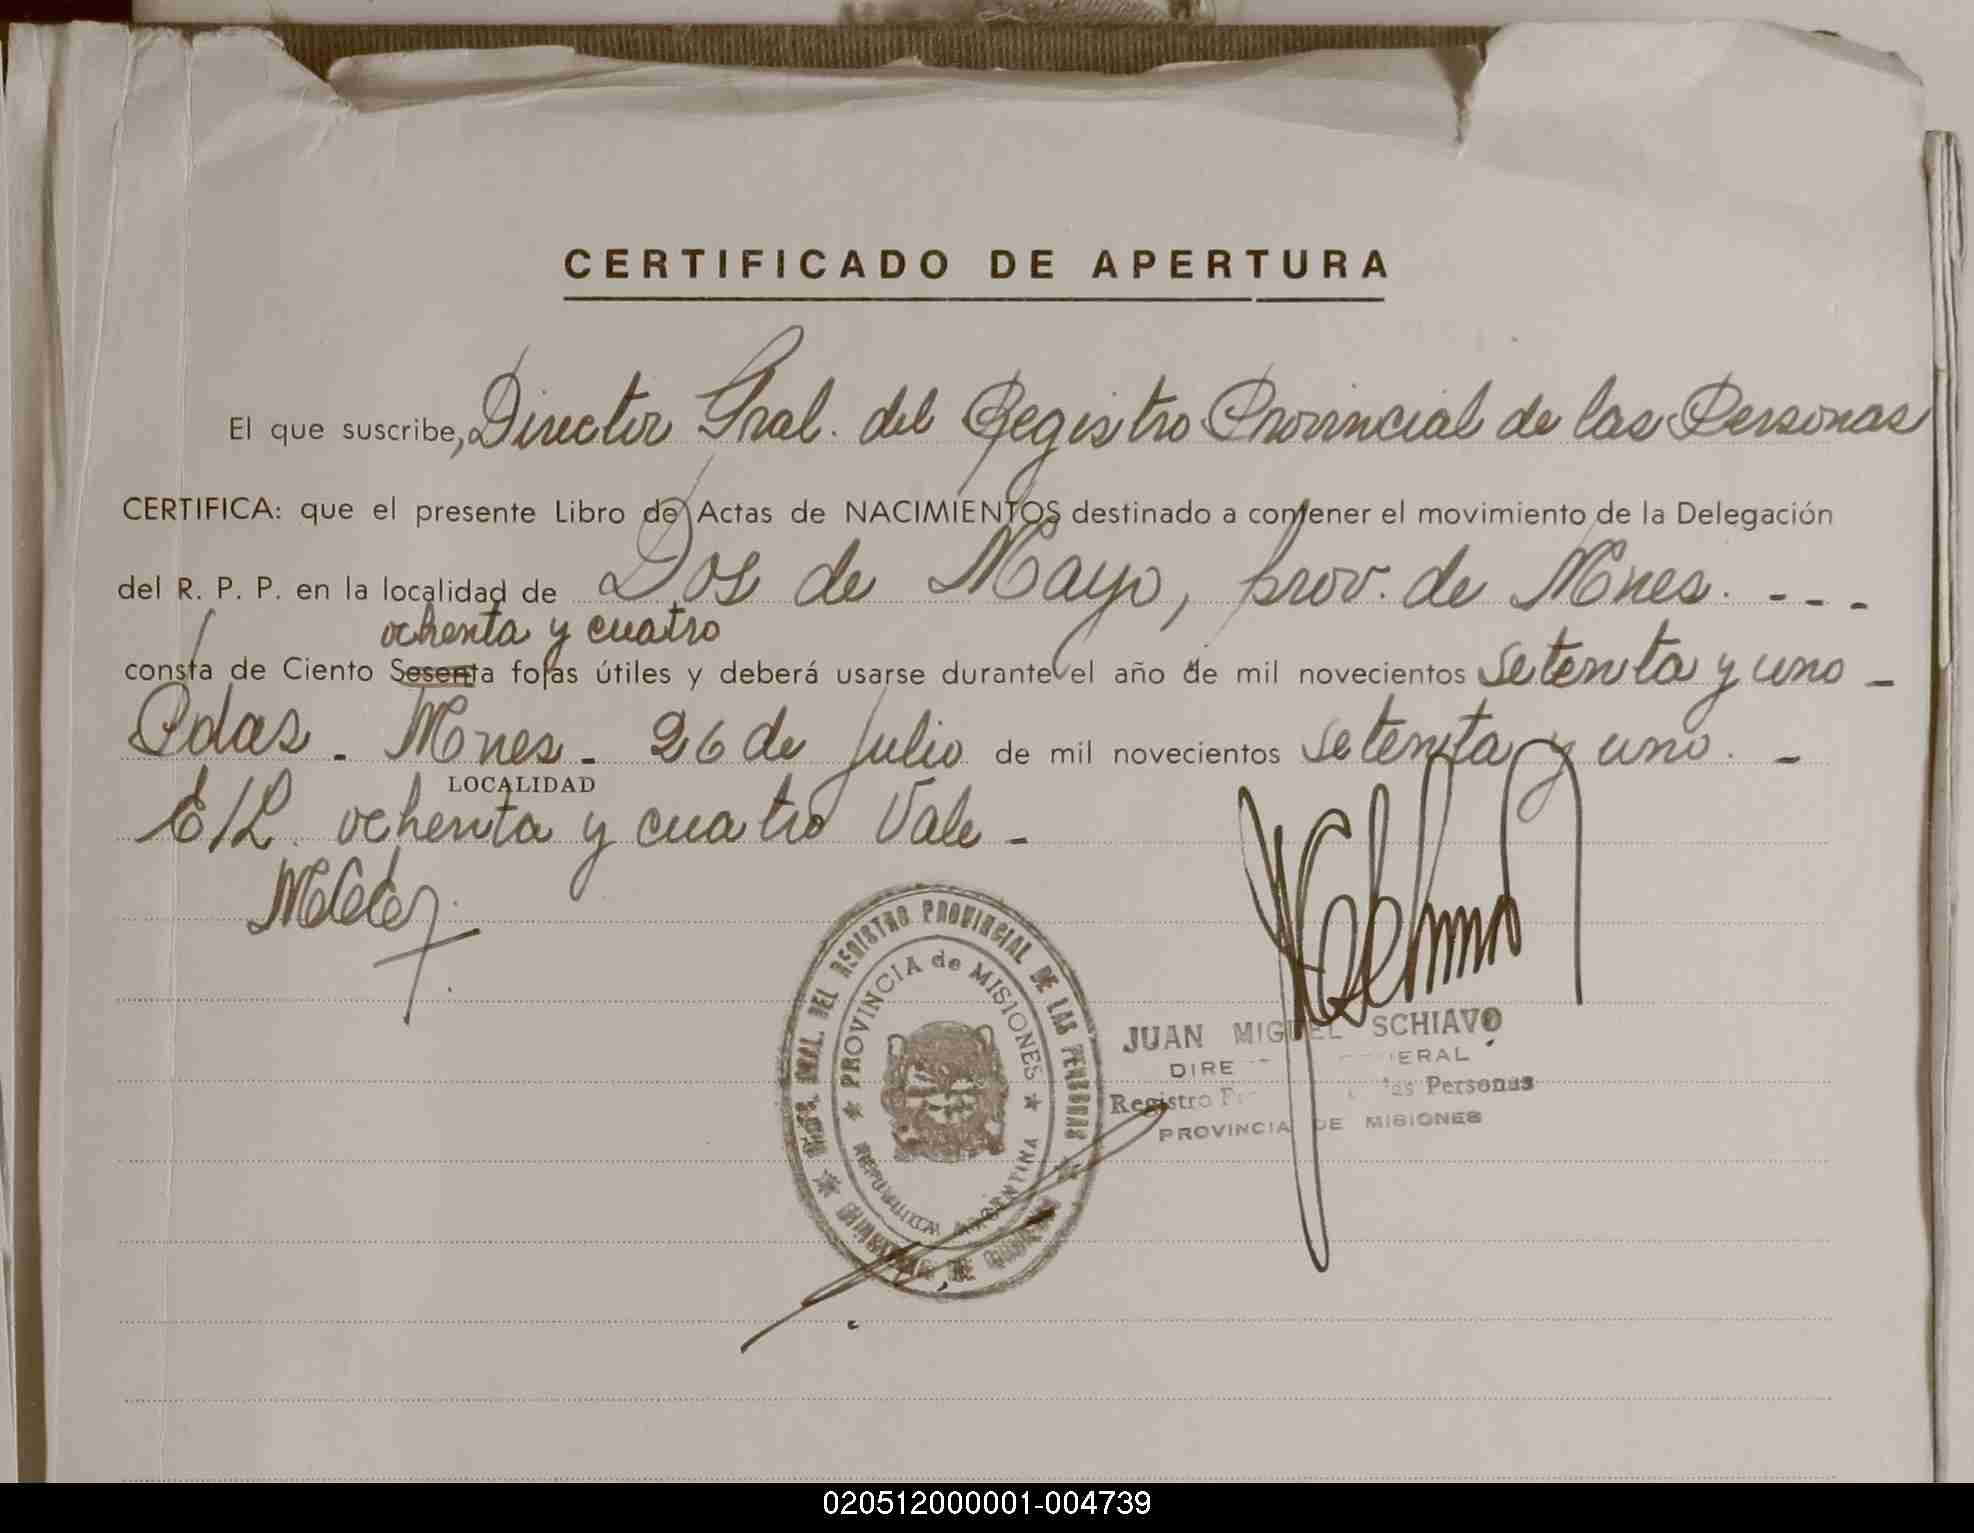 CERTIFICADO DE APERTURA
El que suscribe, Director Gral. del Registro Provincial de las Personas
CERTIFICA: que el presente Libro de Actas de NACIMIENTOS destinado a contener el movimiento de la Delegación
del R. P. P. en la localidad de Dos de Mayo, prov. de Mnes. - - -
ochenta y cuatro
consta de Ciento Sesenta fojas útiles y deberá usarse durante el año de mil novecientos setenta y uno -
Pdas. - Mnes. - 26 de Julio de mil novecientos setenta y uno. -
LOCALIDAD
E/L. ochenta y cuatro Vale -
GRAL. DEL REGISTRO PROVINCIAL DE LAS PERSONAS
PROVINCIA de MISIONES
REPUBLICA ARGENTINA
JUAN MIGUEL SCHIAVO
DIRE ERAL
Registro as Personas
PROVINCIA DE MISIONES
020512000001-004739